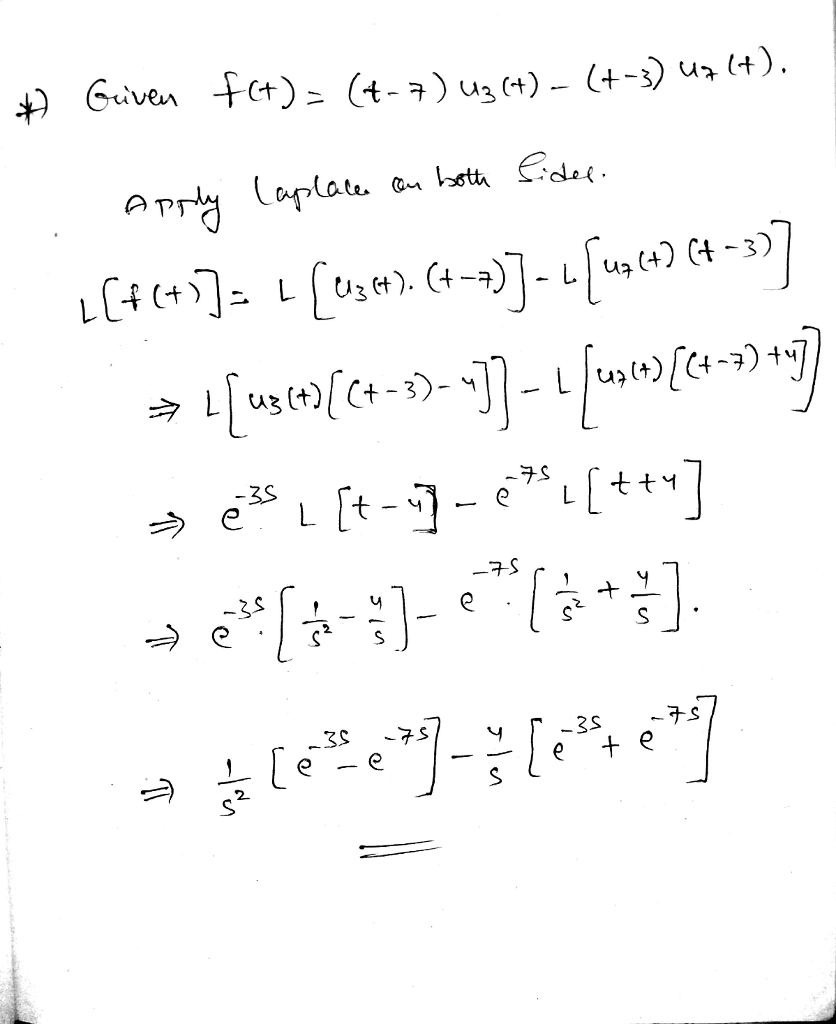 *) Given f(t) = (t-7) u₃(t) - (t-3) u₇(t).
Apply Laplace on both Sides.
L[f(t)] = L[u₃(t).(t-7)] - L[u₇(t)(t-3)]
⇒ L[u₃(t)[(t-3)-4]] - L[u₇(t)[(t-7)+4]]
⇒ e^{-3s} L[t-4] - e^{-7s} L[t+4]
⇒ e^{-3s}.[1/s² - 4/s] - e^{-7s}.[1/s² + 4/s].
⇒ 1/s² [e^{-3s} - e^{-7s}] - 4/s [e^{-3s} + e^{-7s}]